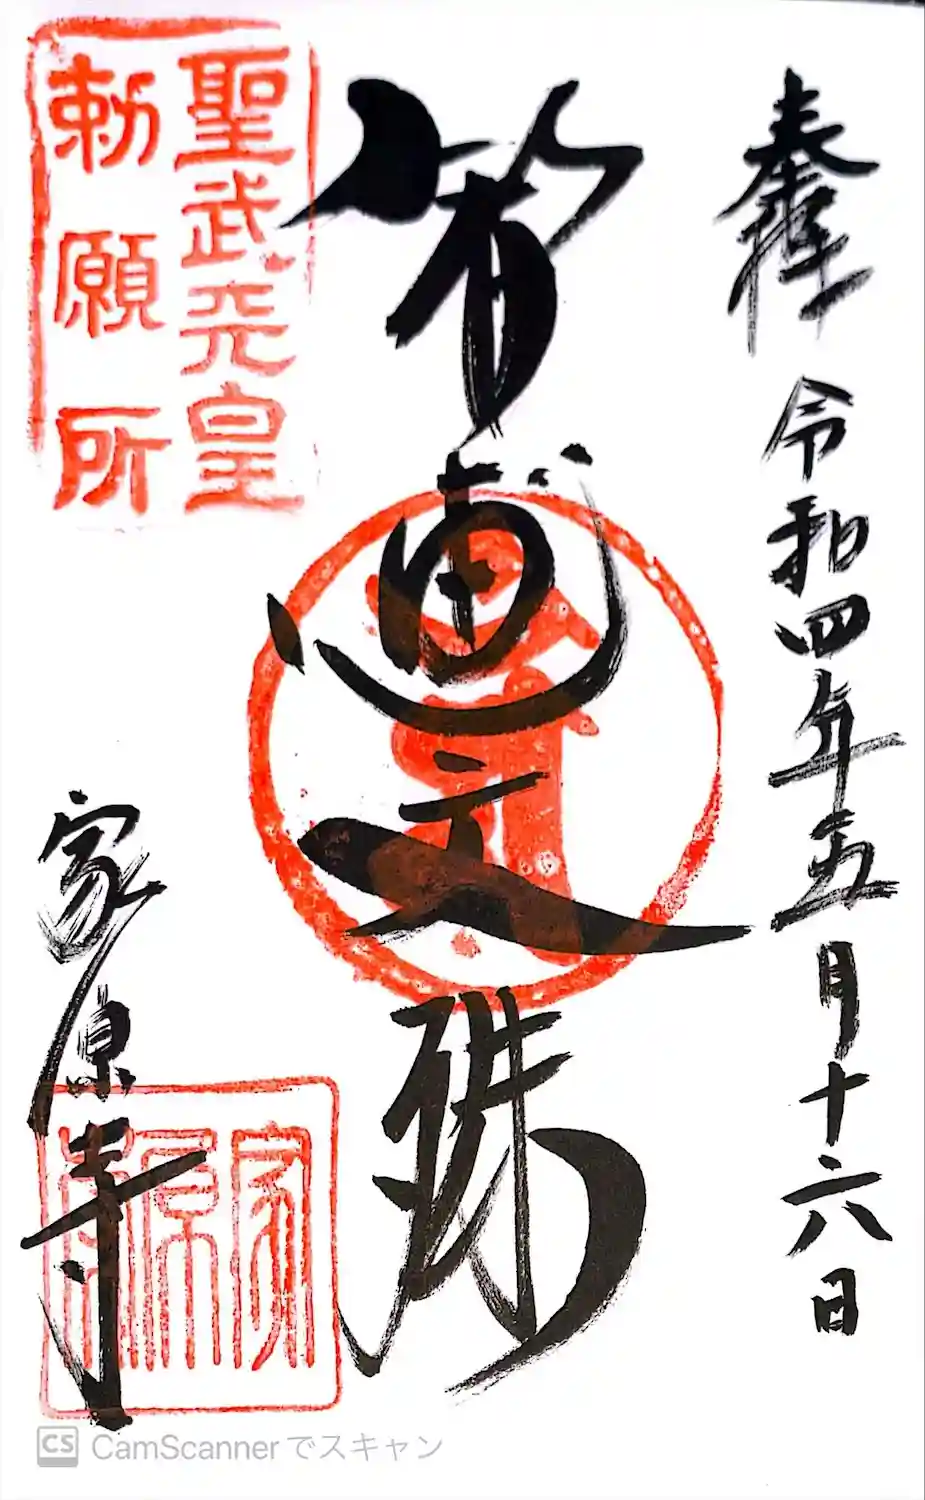 奉拝
令和四年五月十六日
智恵文殊
聖武天皇
勅願所
家原寺
家原寺
CS CamScannerでスキャン